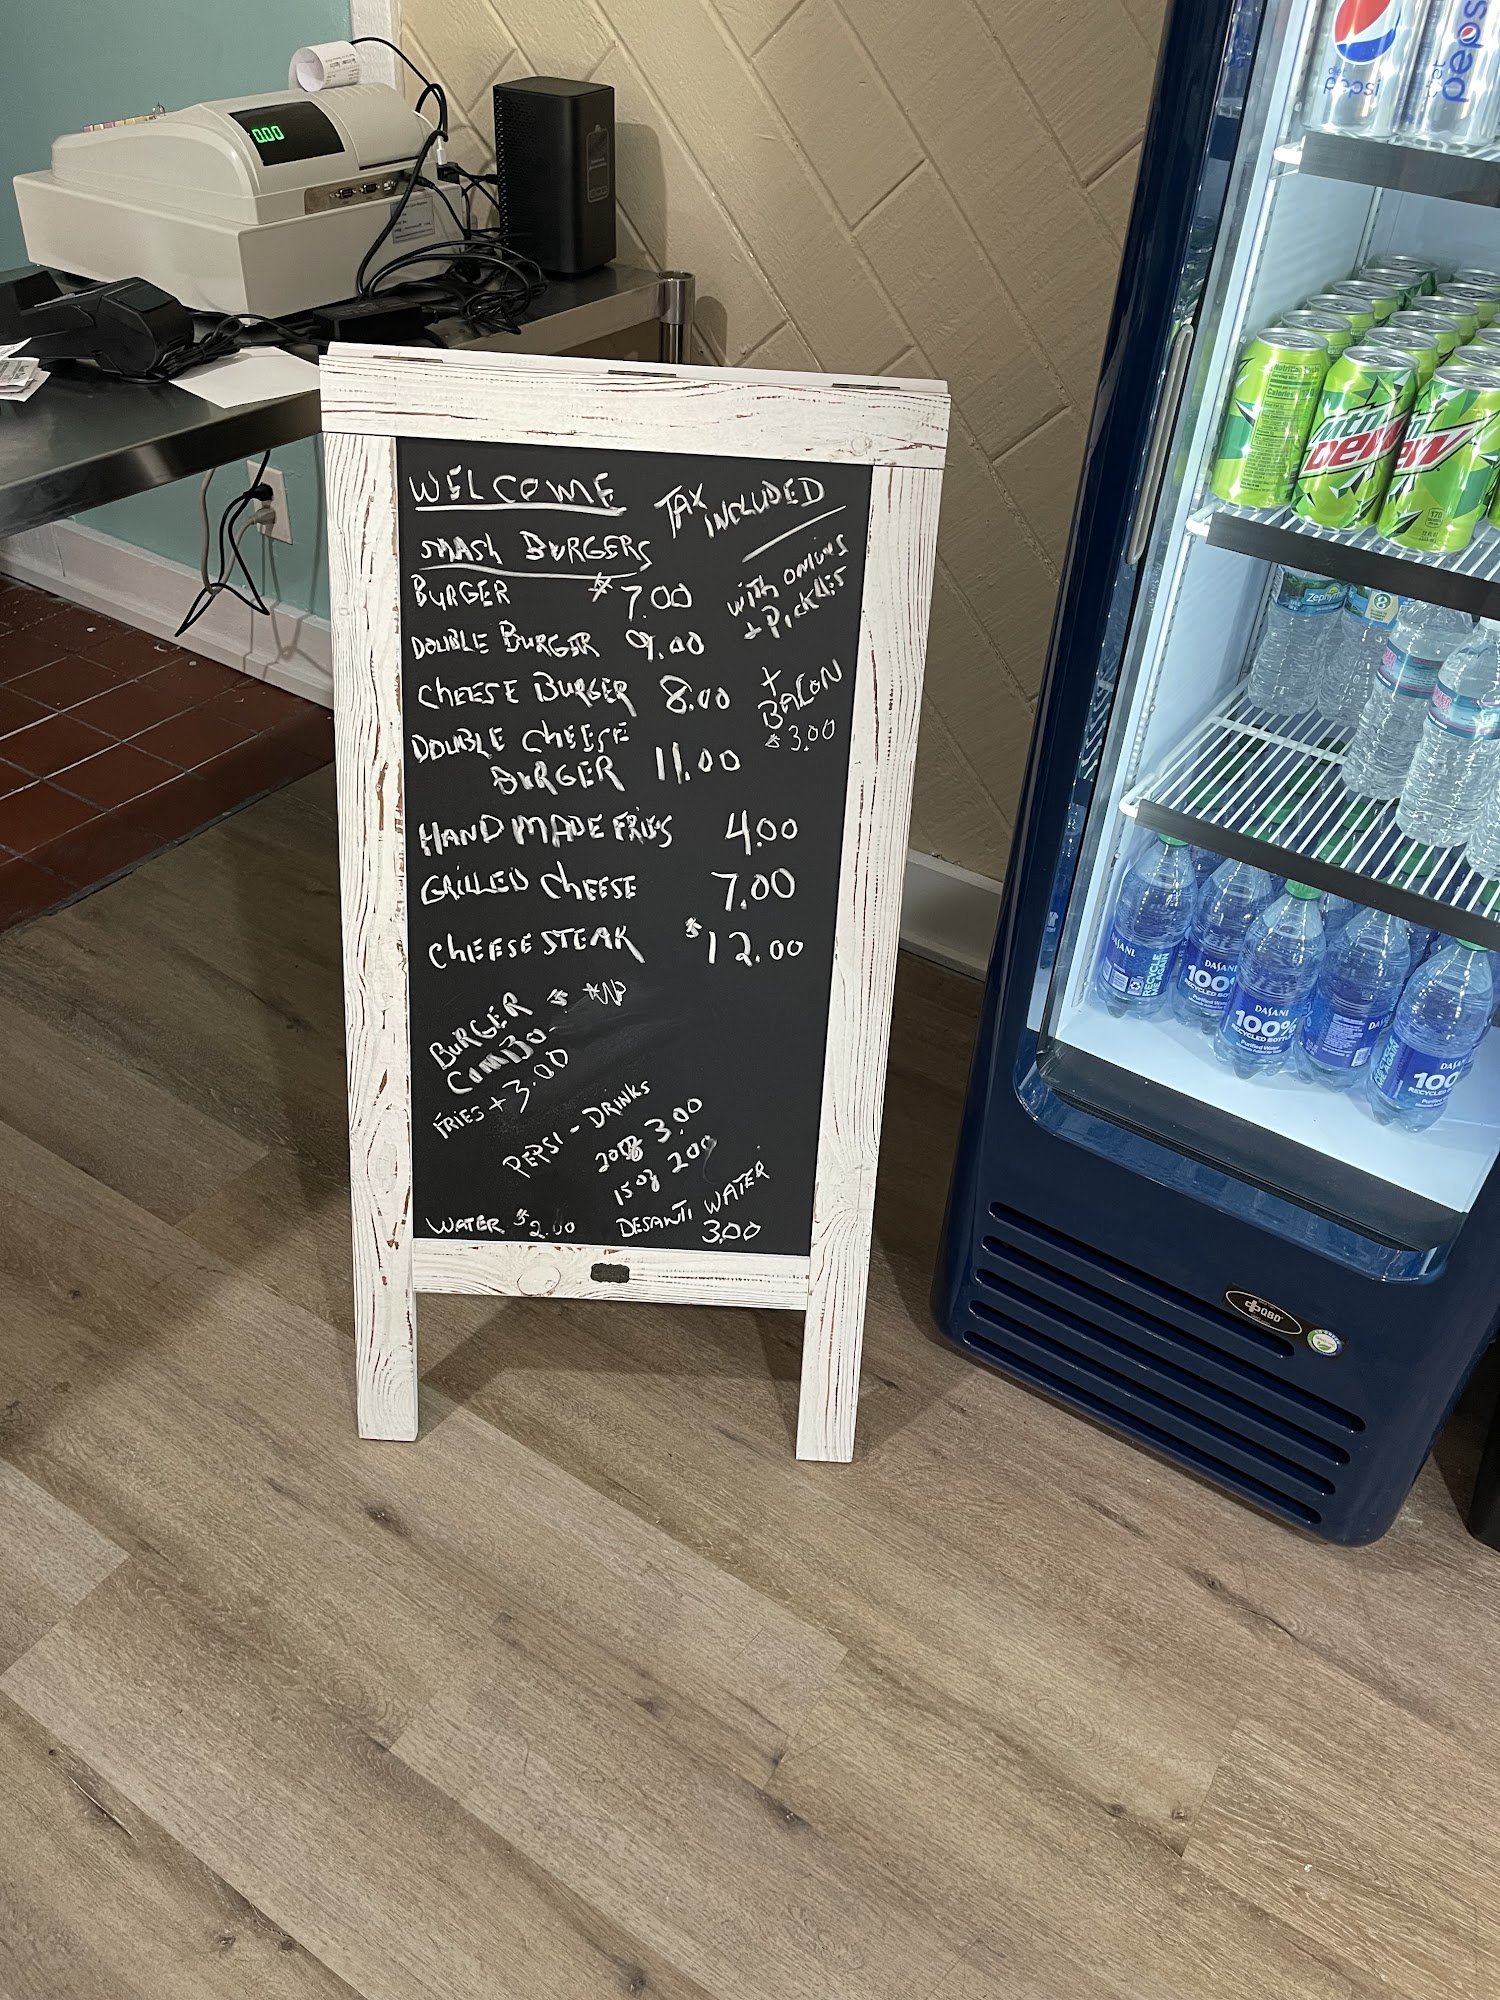 0.00
WELCOME
TAX INCLUDED
SMASH BURGERS
BURGER $ 7.00
with onions
+ Pickles
DOUBLE BURGER 9.00
CHEESE BURGER 8.00
+
BACON
$ 3.00
DOUBLE CHEESE
BURGER 11.00
HAND MADE FRIES 4.00
GRILLED CHEESE 7.00
CHEESE STEAK $12.00
BURGER $
COMBO
FRIES + 3.00
PEPSI - DRINKS
20oz 3.00
15oz 200
WATER $2.00
DESANTI WATER
3.00
diet
pepsi
diet
pepsi
Calories
mtn
DEW
170
Zephyrhills
DASANI
RECYCLE
ME AGAIN
DASANI
100%
RECYCLED BOTTLE
DASANI
100%
RECYCLED BOTTLE
Purified Water
DASANI
100
QBD